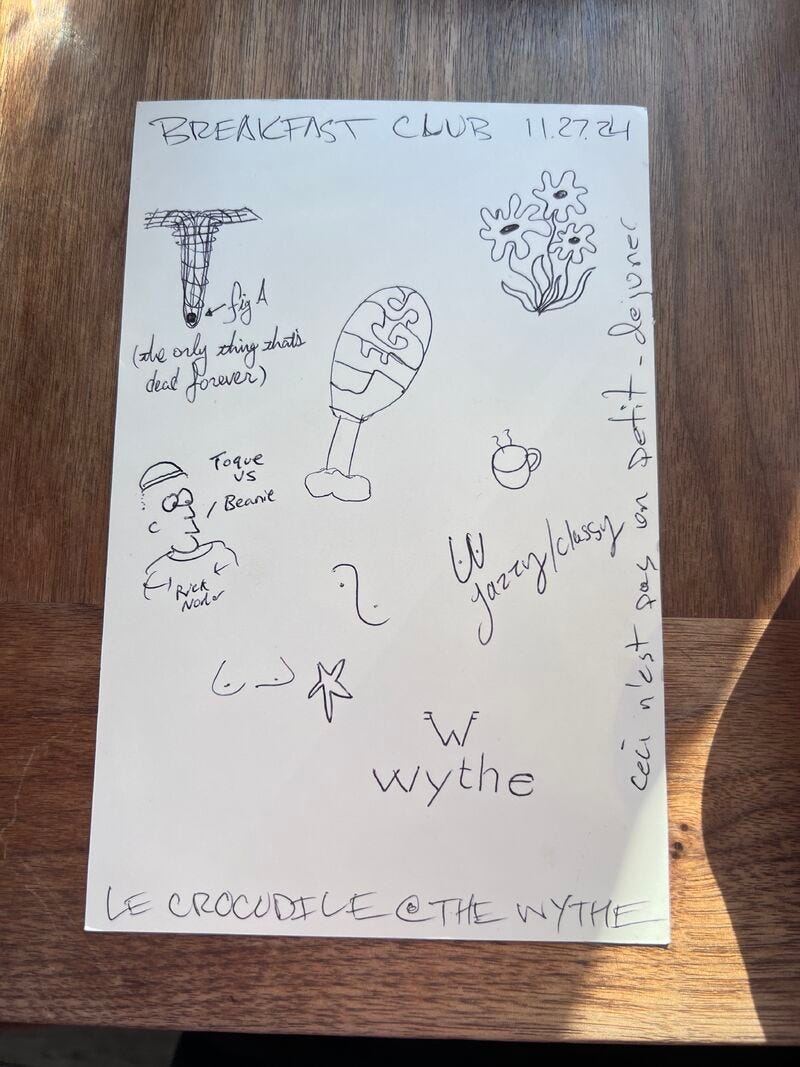 BREAKFAST CLUB 11.27.24
fig A
(the only thing that's
dead forever)
LEGS
Toque
vs
Beanie
Rick
W
jazzy/classy
ceci n'est pas un petit-dejuner
W
wythe
LE CROCODILE @ THE WYTHE